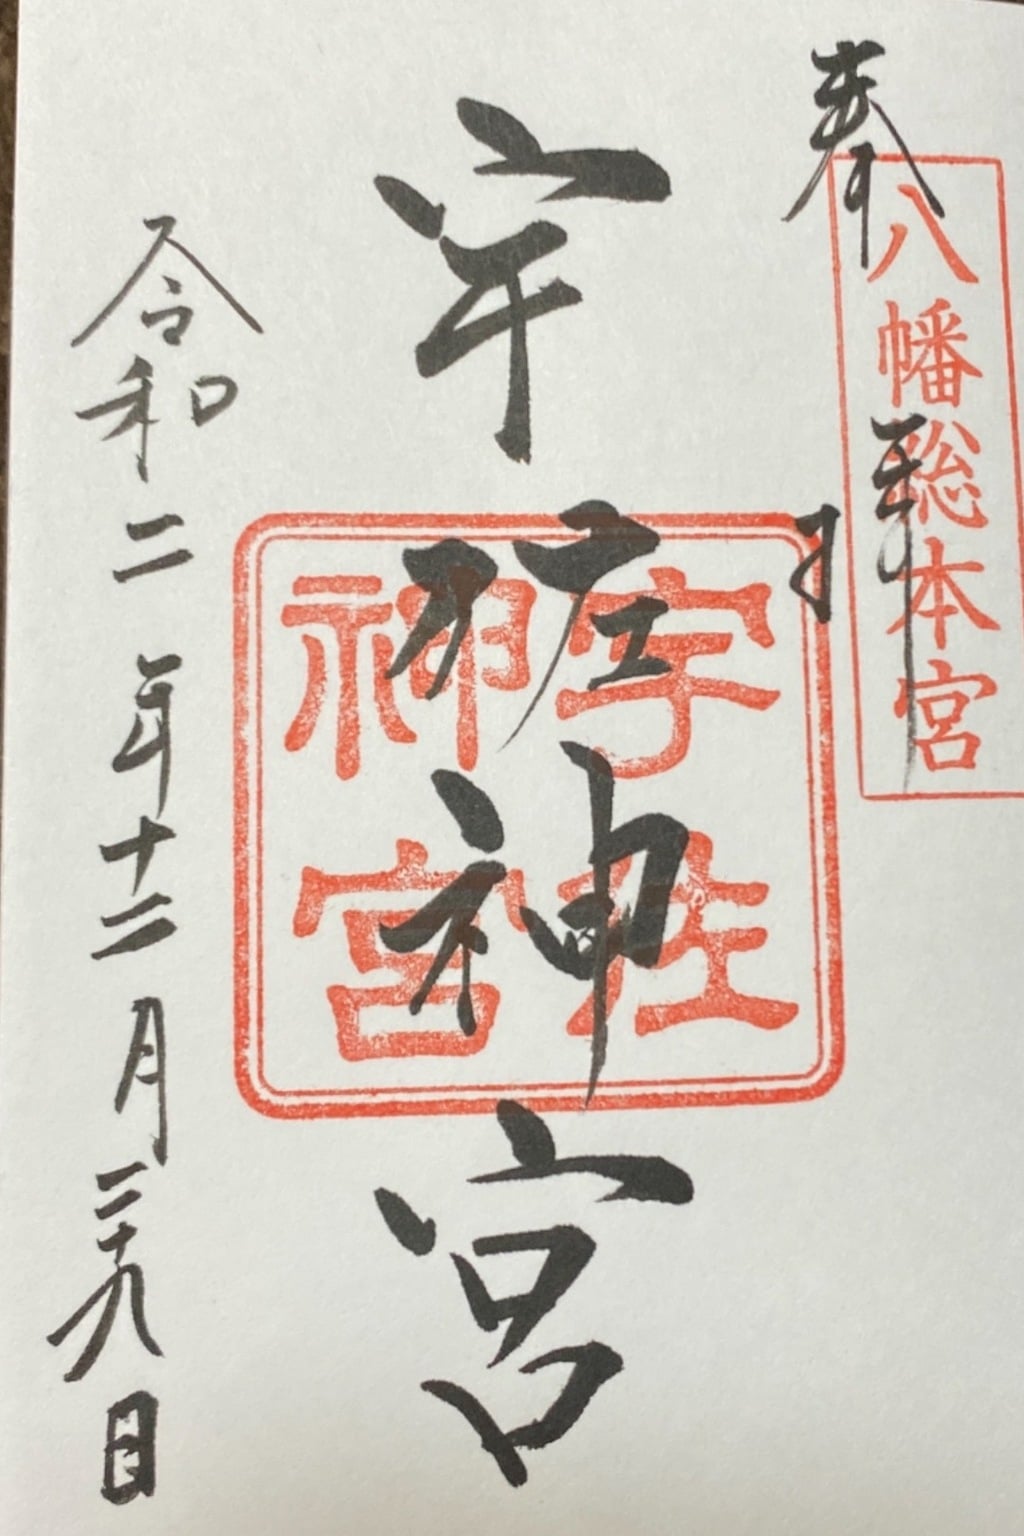 奉拝
八幡総本宮
宇佐神宮
宇佐
神宮
令和二年十二月二十九日